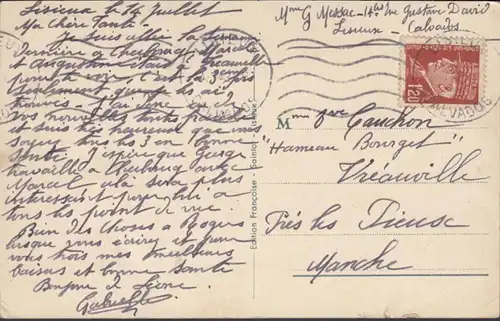 Lisieux le 14 Juillet
Ma Chère Tante
Je suis allée la semaine
dernière à Cherbourg, Marcel
et Augustine étais à Vréauville
pour le voir, c'est la 3ème
seulement, que je les ai
trouvés - J'ai donc eu de
vos nouvelles toutes fraiche
et suis très heureuse que vous
soyez tous les 3 en bonne
Santé. J'espère que George
travaille à Cherbourg avec
Marcel celà sera plus
interessant pour lui à
tous les point de vue.
Bien des choses à Roger
lorsque vous écrirez et pour
vous trois mes meilleurs
baisers et bonne Santé
Bonjour à Léone
Gabrielle
Mme G Messac - 14bis rue Gustave David
Lisieux - Calvados
1f20
CALVADOS
Mme Vve Cauchon
"Hameau Bourget"
Vréauville
Près les Pieuse
Manche
Edition Française